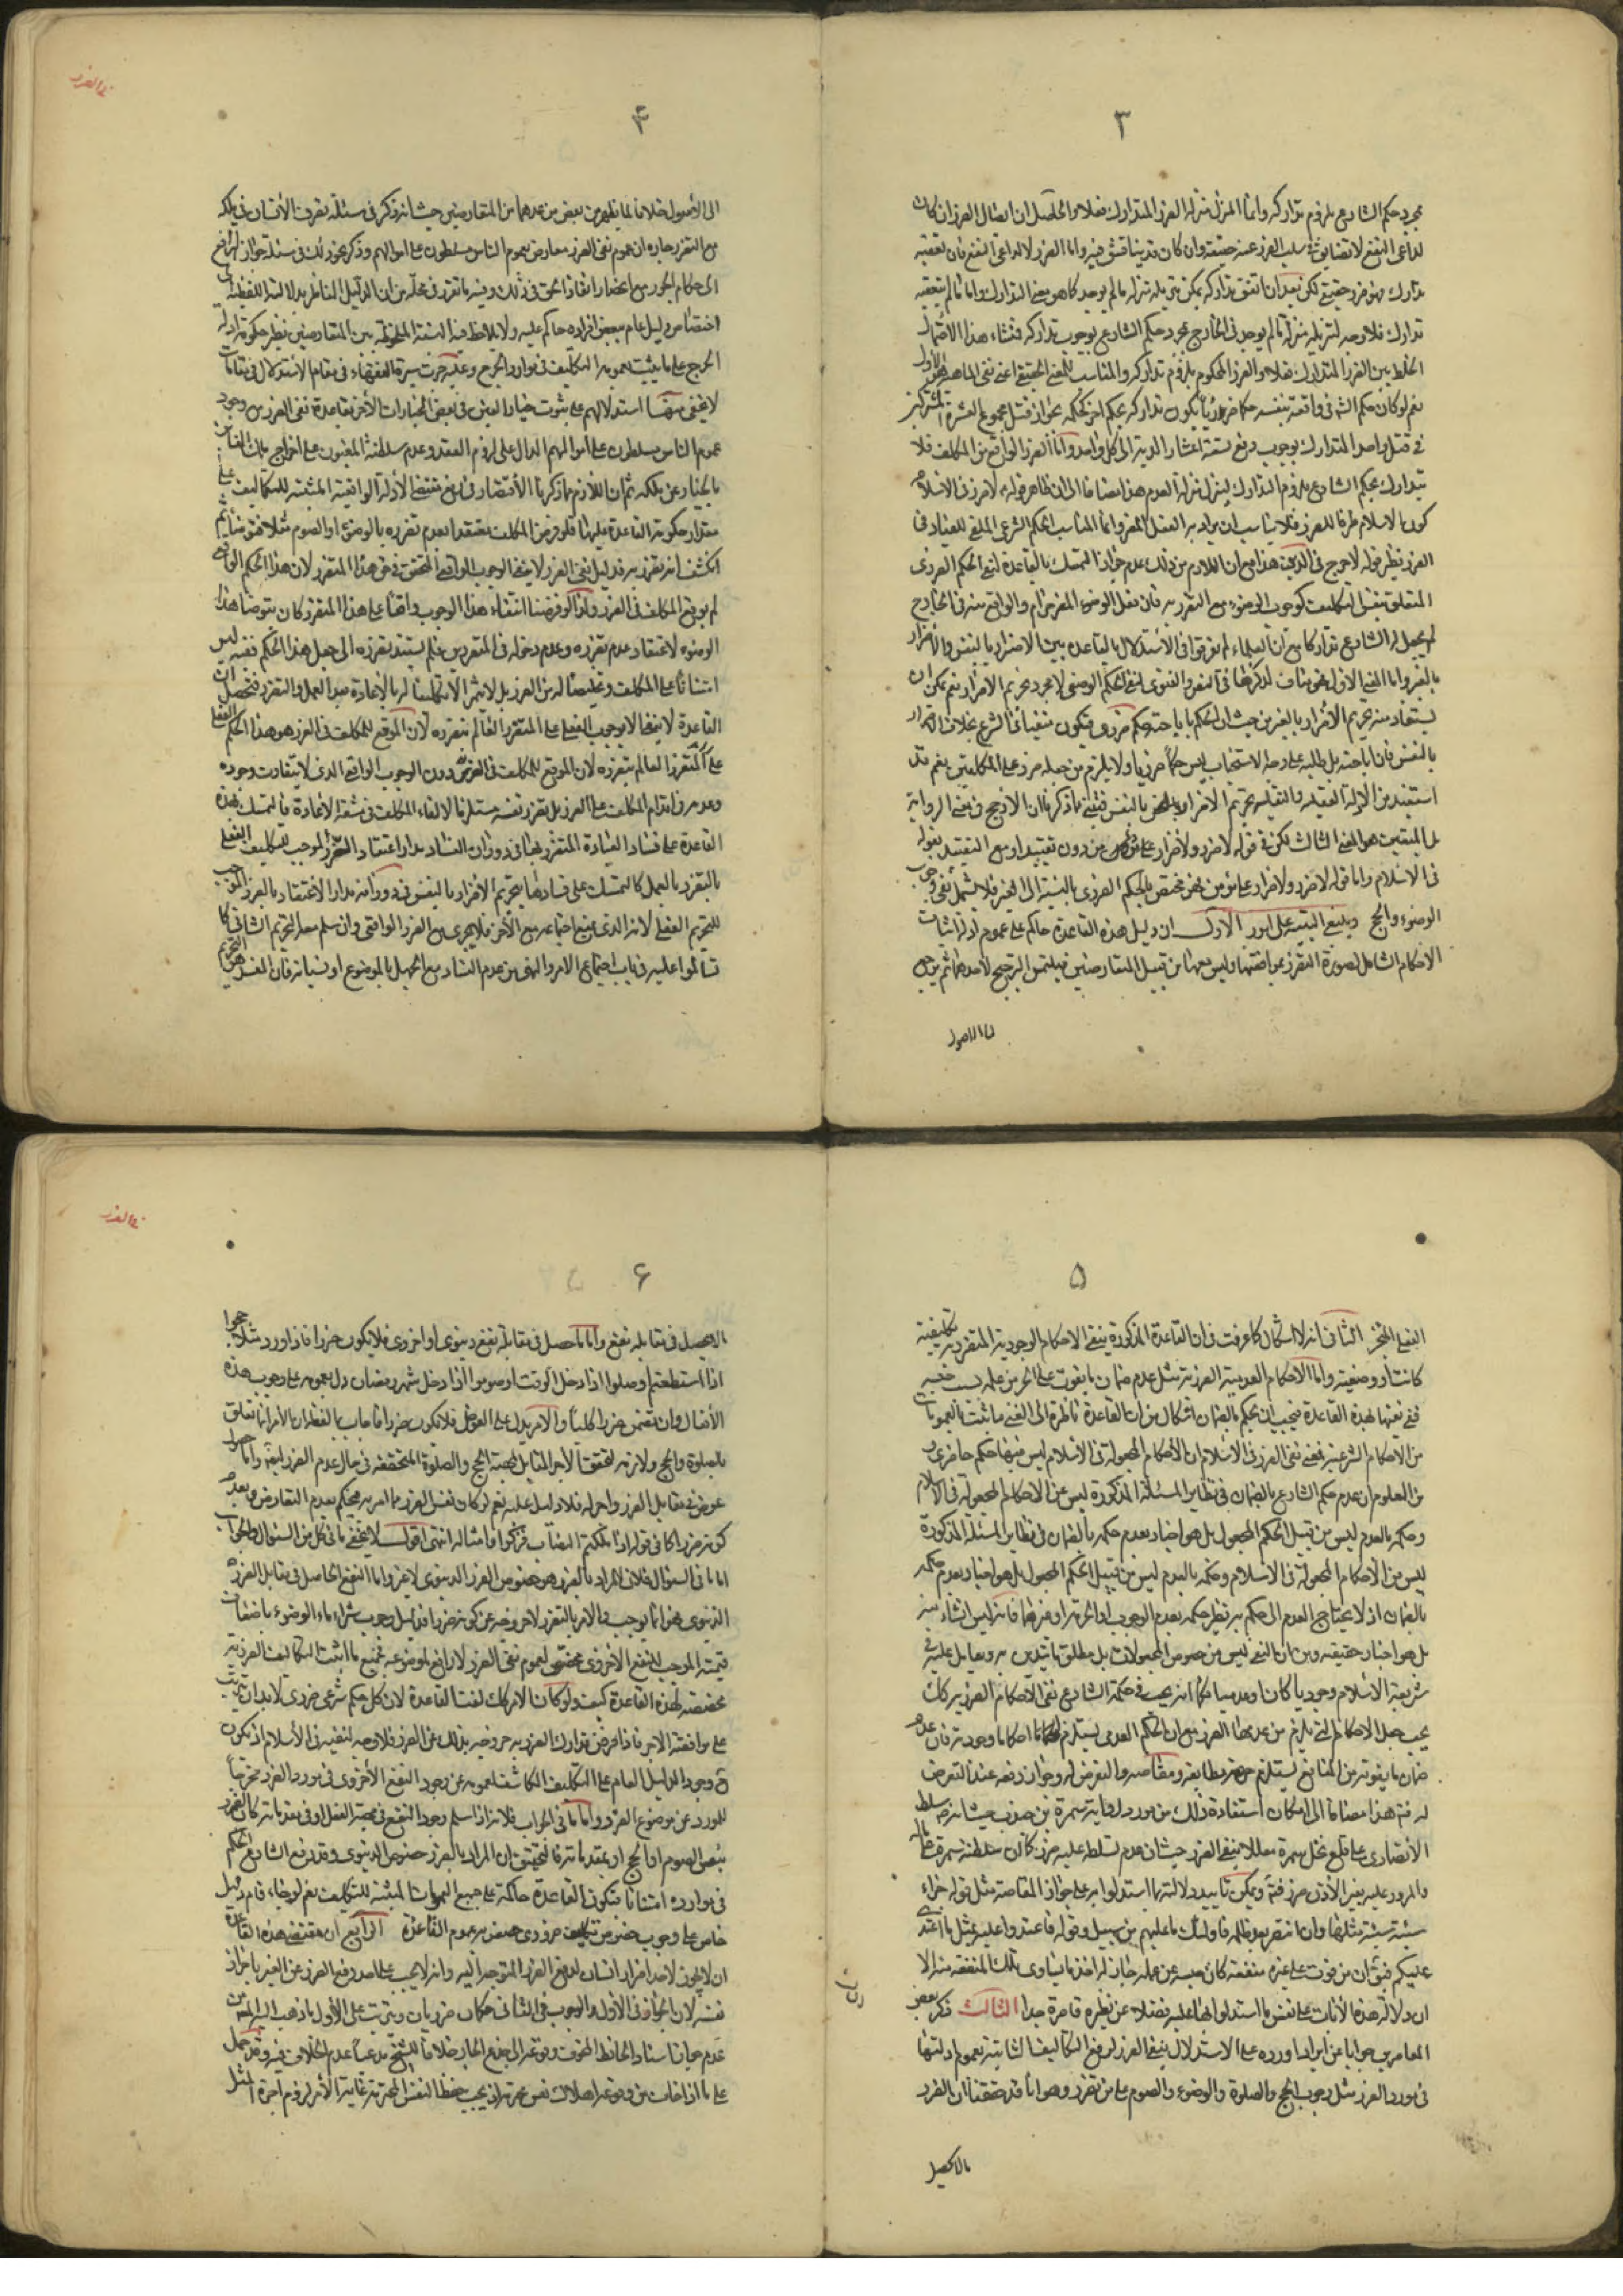 ٣
بمجرد حكم الشارع بلزوم تداركه وانما المنزل منزلة الضرر المتدارك فعلا والحاصل ان ايصال الضرر ان كان
لداعى النفع لا تضايق فى سلب الضرر عنه حقيقة وان كان قد يناقش فيه واما الضرر لا لداعى النفع فان تعقبه
تدارك فهو ضرر حقيقى لكن بعد ان اتفق تداركه يمكن تنزيله منزلة ما لم يوجد كما هو معنى التدارك واما ما لم يتعقبه
تدارك فلا وجه لتنزيله منزلة ما لم يوجد فى الخارج بمجرد حكم الشارع بوجوب تداركه فمنشاء هذا الاحتمال
الخلط بين الضرر المتدارك فعلا والضرر المحكوم بلزوم تداركه والمناسب للمعنى الحقيقى اعنى نفى الماهية هو الاول
نعم لو كان حكم الشرع فى واقعة بنفسه حكما ضرريا يكون تداركه بحكم اخر كحكمه بجواز قتل مجموع العشرة المشتركين
فى قتل واحد المتدارك بوجوب دفع تسعة اعشار الدية الى كل واحد واما الضرر الواقع من المكلف فلا
يتدارك بحكم الشارع بلزوم التدارك لينزل منزلة العدم هذا مضافا الى ان ظاهر قوله لا ضرر فى الاسلام
كون الاسلام ظرفا للضرر فلا يناسب ان يراد به الفعل المضر وانما المناسب الحكم الشرعى الملقى للعباد فى
الضرر نظير قوله لا حرج فى الدين هذا مع ان اللازم من ذلك عدم جواز التمسك بالقاعدة لنفى الحكم الضررى
المتعلق بنفس المكلف كوجوب الوضوء مع التضرر به فان فعل الوضوء المضر حرام والواقع منه فى الخارج
لم يجعل له الشارع تداركا مع ان العلماء لم يفرقوا فى الاستدلال بالقاعدة بين الاضرار بالنفس والاضرار
بالغير واما المعنى الاول فهو مناف لذكرها فى النص والفتوى لنفى الحكم الوضعى لا مجرد تحريم الاضرار نعم يمكن ان
يستفاد منه تحريم الاضرار بالغير من حيث ان الحكم باباحته حكم ضررى فيكون منفيا فى الشرع بخلاف الاضرار
بالنفس فان اباحته بل طلبه على وجه الاستحباب ليس حكما ضرريا ولا يلزم من جعله ضرر على المكلفين نعم قد
استفيد من الادلة العقلية والنقلية تحريم الاضرار بالنفس فتبين مما ذكرنا ان الارجح فى معنى الرواية
بل المتعين هو المعنى الثالث لكن فى قوله لا ضرر ولا ضرار من دون تقييد او مع التقييد بقوله
فى الاسلام واما قوله لا ضرر ولا ضرار على مؤمن فهو مختص بالحكم الضررى بالنسبة الى الغير فلا يشمل نفى وجوب
الوضوء والحج وينبغى التنبيه على امور الاول ان دليل هذه القاعدة حاكم على عموم ادلة اثبات
الاحكام الشامل لصورة التضرر بموافقتها وليس معها من قبيل المتعارضين فيلتمس الترجيح لاحدهما ثم يرجع
الى الاصول
٤
الى الاصول خلافا لما يظهر من بعض من عدهما من المتعارضين حيث انه ذكر فى مسئلة تصرف الانسان فى ملكه
مع تضرر جاره ان عموم نفى الضرر معارض بعموم الناس مسلطون على اموالهم وذكر نحو ذلك فى مسئلة جواز الترافع
الى حكام الجور مع انحصار انقاذ الحق فى ذلك وفيه ما تقرر فى محله من ان الدليل الناظر بدلالته اللفظية الى
اختصاص دليل عام ببعض افراده حاكم عليه ولا يلاحظ فيه النسبة الملحوظة بين المتعارضين نظير حكومة ادلة
الحرج على ما يثبت بعمومه التكليف فى موارد الحرج وعليه جرت سيرة الفقهاء فى مقام الاستدلال فى مقامات
لا يخفى منها استدلالهم على ثبوت خيار الغبن فى بعض الخيارات الاخر بقاعدة نفى الضرر مع وجود
عموم الناس مسلطون على اموالهم الدال على لزوم العقد وعدم سلطنة المغبون على اخراج ملك الغابن
بالخيار عن ملكه ثم ان اللازم مما ذكرنا الاقتصار فى رفع مقتضى الادلة الواقعية المثبتة للتكاليف على
مقدار حكومة القاعدة عليها فلو فرض المكلف معتقدا لعدم تضرره بالوضوء او الصوم مثلا فتوضأ ثم
انكشف انه تضرر به فدليل نفى الضرر لا ينفى الوجوب الواقعى المتحقق فى حق هذا المتضرر لان هذا الحكم الواقعى
لم يوقع المكلف فى الضرر ولذا لو فرضنا انتفاء هذا الوجوب واقعا على هذا المتضرر كان يتوضأ هذا
الوضوء لاعتقاد عدم تضرره وعدم دخوله فى المتضررين فلم يستند تضرره الى جعل هذا الحكم فنفيه ليس
امتنانا على المكلف وتخليصا له من الضرر بل لا يثمر الا تكليفا له بالاعادة بعد العمل والتضرر فتحصل ان
القاعدة لا تنفى الا الوجوب الفعلى على المتضرر العالم بتضرره لان الموقع للمكلف فى الضرر هو هذا الحكم الفعلى
على المتضرر العالم بتضرره لان الموقع للمكلف فى الضرر دون الوجوب الواقعى الذى لا يتفاوت وجوده
وعدمه فى اقدام المكلف على الضرر بل تضرر نفسه مستلزما لالقاء المكلف فى مشقة الاعادة فالتمسك بهذه
القاعدة على فساد العبادة المتضرر بها فى دوران الفساد مدار اعتقاد الضرر الموجب للتكليف الفعلى
بالتضرر بالعمل كالتمسك على فسادها بتحريم الاضرار بالنفس فى دورانه مدار الاعتقاد بالضرر الموجب
للتحريم الفعلى لانه الذى يمتنع اجتماعه مع الاخر فلا يجرى مع الضرر الواقعى وان سلم معه التحريم الشانى كما
تسالموا عليه فى باب اجتماع الامر والنهى من عدم الفساد مع الجهل بالموضوع او نسيانه فان المفسد هو التحريم
٥
الفعلى المنجز الثانى انه لا اشكال كما عرفت فى ان القاعدة المذكورة ينفى الاحكام الوجودية الضررية تكليفية
كانت او وضعية واما الاحكام العدمية الضررية مثل عدم ضمان ما يفوت على الحر من عمله بسبب حبسه
ففى نفيها بهذه القاعدة فيجب ان يحكم بالضمان اشكال من ان القاعدة ناظرة الى نفى ما ثبت بالعمومات
من الاحكام الشرعية فمعنى نفى الضرر فى الاسلام ان الاحكام المجعولة فى الاسلام ليس فيها حكم ضررى و
من المعلوم ان عدم حكم الشارع بالضمان فى نظاير المسئلة المذكورة ليس من الاحكام المجعولة فى الاسلام
وحكمه بالعدم ليس من قبيل الحكم المجعول بل هو اخبار بعدم حكمه بالضمان فى نظاير المسئلة المذكورة
ليس من الاحكام المجعولة فى الاسلام وحكمه بالعدم ليس من قبيل الحكم المجعول بل هو اخبار بعدم حكمه
بالضمان اذ لا يحتاج العدم الى حكم به نظير حكمه بعدم الوجوب او الحرمة او غيرهما فانه ليس انشاء منه
بل هو اخبار حقيقة ومن ان المنفى ليس من خصوص المجعولات بل مطلق ما يتدين به ويعامل عليه فى
شريعة الاسلام وجوديا كان او عدميا فكما انه يجب فى حكمة الشارع نفى الاحكام الضررية كذلك
يجب جعل الاحكام التى يلزم من عدمها الضرر مع ان الحكم العدمى يستلزم احكاما وجودية فان عدم
ضمان ما يفوته من المنافع يستلزم حرمة مطالبته ومقاصته والتعرض له وجواز دفعه عند التعرض
له فتم هذا مضافا الى امكان استفادة ذلك من مورد رواية سمرة بن جندب حيث انه سلط
الانصارى على قلع نخل سمرة معللا بنفى الضرر حيث ان عدم تسلطه عليه ضرر كما ان سلطنة سمرة على ماله
والمرور عليه بغير الاذن ضرر فتم ويمكن تاييد دلالته بما استدلوا به على جواز المقاصة مثل قوله جزاء
سيئة سيئة مثلها ولمن انتصر بعد ظلمه فاولئك ما عليهم من سبيل وقوله فاعتدوا عليه بمثل ما اعتدى
عليكم فتوى ان من فوت على غيره منفعة كان حبسه عن عمله جاز له اخذ ما يساوى تلك المنفعة منه الا
ان دلالة هذه الايات على نفس ما استدلوا بها عليه فضلا عن نظيره قاصرة جدا الثالث ذكر بعض
المعاصرين جوابا عن ايراد اورده على الاستدلال بنفى الضرر لرفع التكاليف الثابتة بعموم ادلتها
فى مورد الضرر مثل وجوب الحج والصلوة والوضوء والصوم على من تضرر وهو انا قد حققنا ان الضرر
ما لا يحصل
٦
ما لا يحصل فى مقابله نفع واما ما حصل فى مقابله نفع دنيوى او اخروى فلا يكون ضررا فاذا ورد مثلا حجوا
اذا استطعتم وصلوا اذا دخل الوقت او صوموا اذا دخل شهر رمضان دل بعمومه على وجوب هذه
الافعال وان تضمن ضررا كليا والامر يدل على العوض فلا يكون ضررا فاجاب بما لفظه ان الامر انما تعلق
بالصلوة والحج ولازمه تحقق الاجر المقابل لمهية الحج والصلوة المتحققة فى حال عدم الضرر ايضا واما حصول
عوض فى مقابل الضرر واجر له فلا دليل عليه نعم لو كان نفس الضرر مما امر به فيحكم بعدم التعارض وبعدم
كونه ضررا كما فى قوله اذا ملكتم النصاب فزكوا وامثاله انتهى اقول لا يخفى ما فى كل من السؤال والجواب
اما ما فى السؤال فلان المراد بالضرر هو خصوص الضرر الدنيوى لا غير واما النفع الحاصل فى مقابل الضرر
الدنيوى فهو انما يوجب الامر بالتضرر لا خروجه عن كونه ضررا فدليل وجوب شراء ماء الوضوء باضعاف
قيمته الموجب للنفع الاخروى مخصص لعموم نفى الضرر لا رافع لموضوعه فجميع ما اثبت التكاليف الضررية
مخصصة لهذه القاعدة كيف ولو كان الامر كذلك لغت القاعدة لان كل حكم شرعى ضررى لابد ان يترتب
على موافقته الاجر فاذا فرض تدارك الضرر به خروجه بذلك عن الضرر فلا وجه لنفيه فى الاسلام اذ يكون
ح وجود الدليل العام على التكليف الكاشف بعمومه عن وجود النفع الاخروى فى مورد الضرر مخرجا
للمورد عن موضوع الضرر واما ما فى الجواب فلانه اذا سلم وجود النفع فى مهية الفعل او فى مقدماته كان الضرر
نفس الصوم او الحج او بمقدماته فالتحقيق ان المراد بالضرر خصوص الدنيوى وقد رفع الشارع الحكم
فى موارده امتنانا فتكون القاعدة حاكمة على جميع العمومات المثبتة للتكليف نعم لو جاء قام دليل
خاص على وجوب خصوص تكليف ضررى خصص به عموم القاعدة الرابع ان مقتضى هذه القاعدة
ان لا يجوز لاحد اضرار انسان لدفع الضرر المتوجه اليه وانه لا يجب على احد دفع الضرر عن الغير باضرار
نفسه لان الجواز فى الاول والوجوب فى الثانى حكمان ضرريان ويترتب على الاول ما ذهب اليه المشهور من
عدم جواز اسناد الحائط المخوف وقوعه الى جذع الجار خلافا للشيخ مدعيا عدم الخلاف فيه وقد حمل
على ما اذا خاف من وقوعه اهلاك نفس محترمة اذ يجب حفظ النفس المحترمة غاية الامر لزوم اجرة المثل